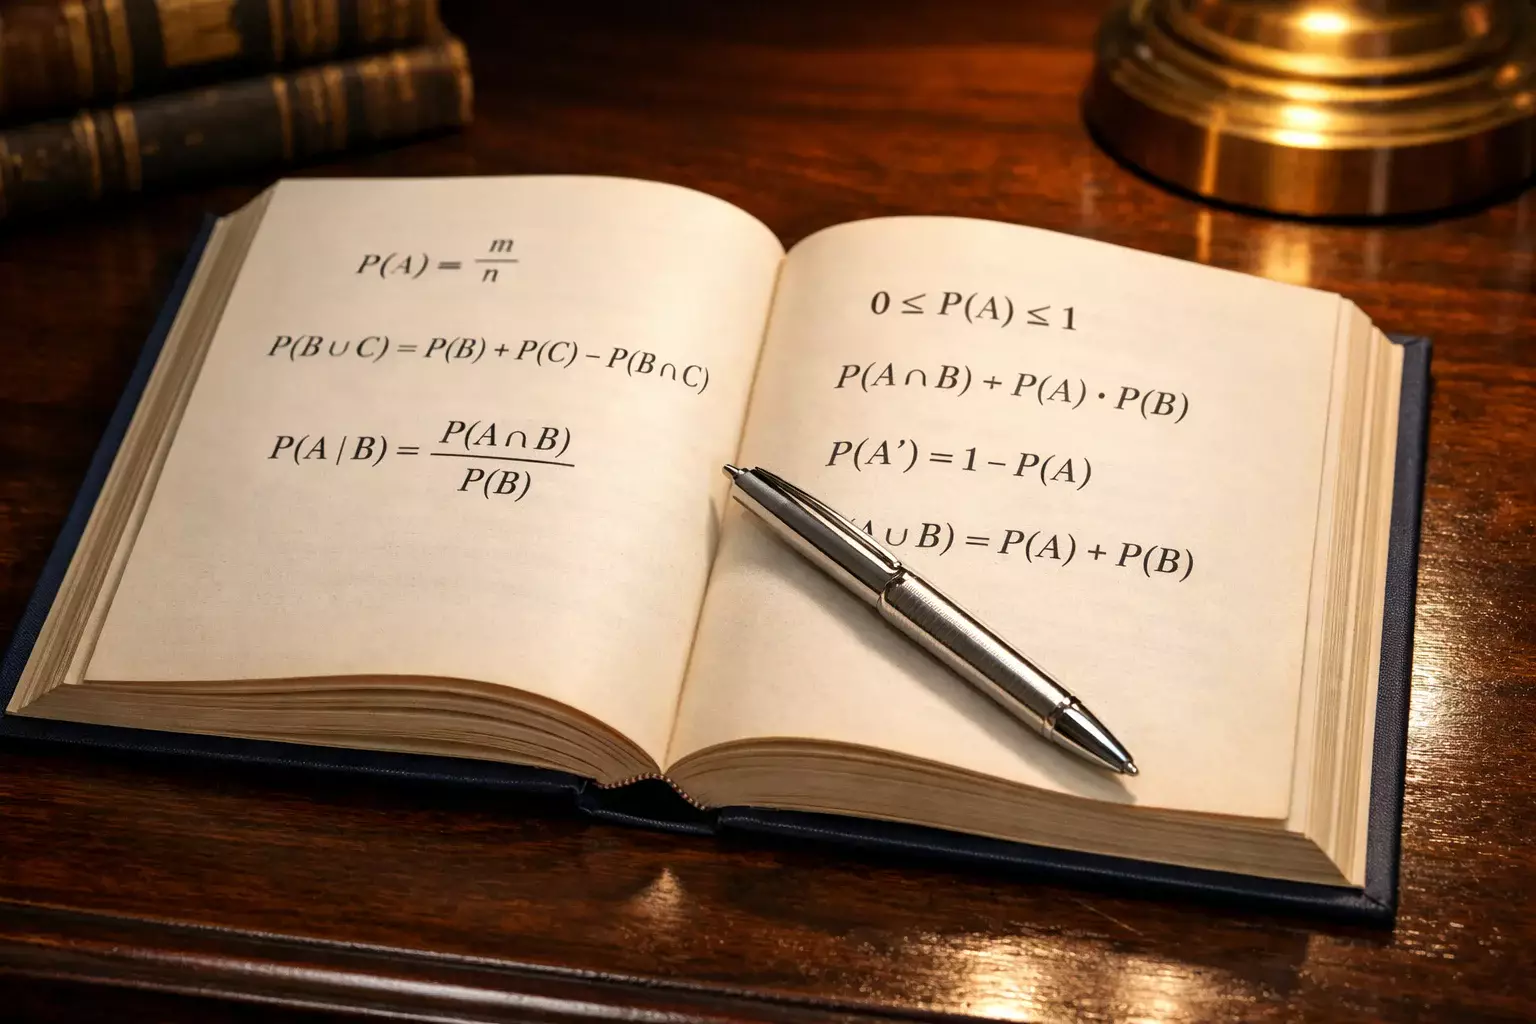 P(A) = m/n
P(B ∪ C) = P(B) + P(C) − P(B ∩ C)
P(A | B) = P(A ∩ B)/P(B)
0 ≤ P(A) ≤ 1
P(A ∩ B) + P(A) · P(B)
P(A’) = 1 − P(A)
A ∪ B) = P(A) + P(B)